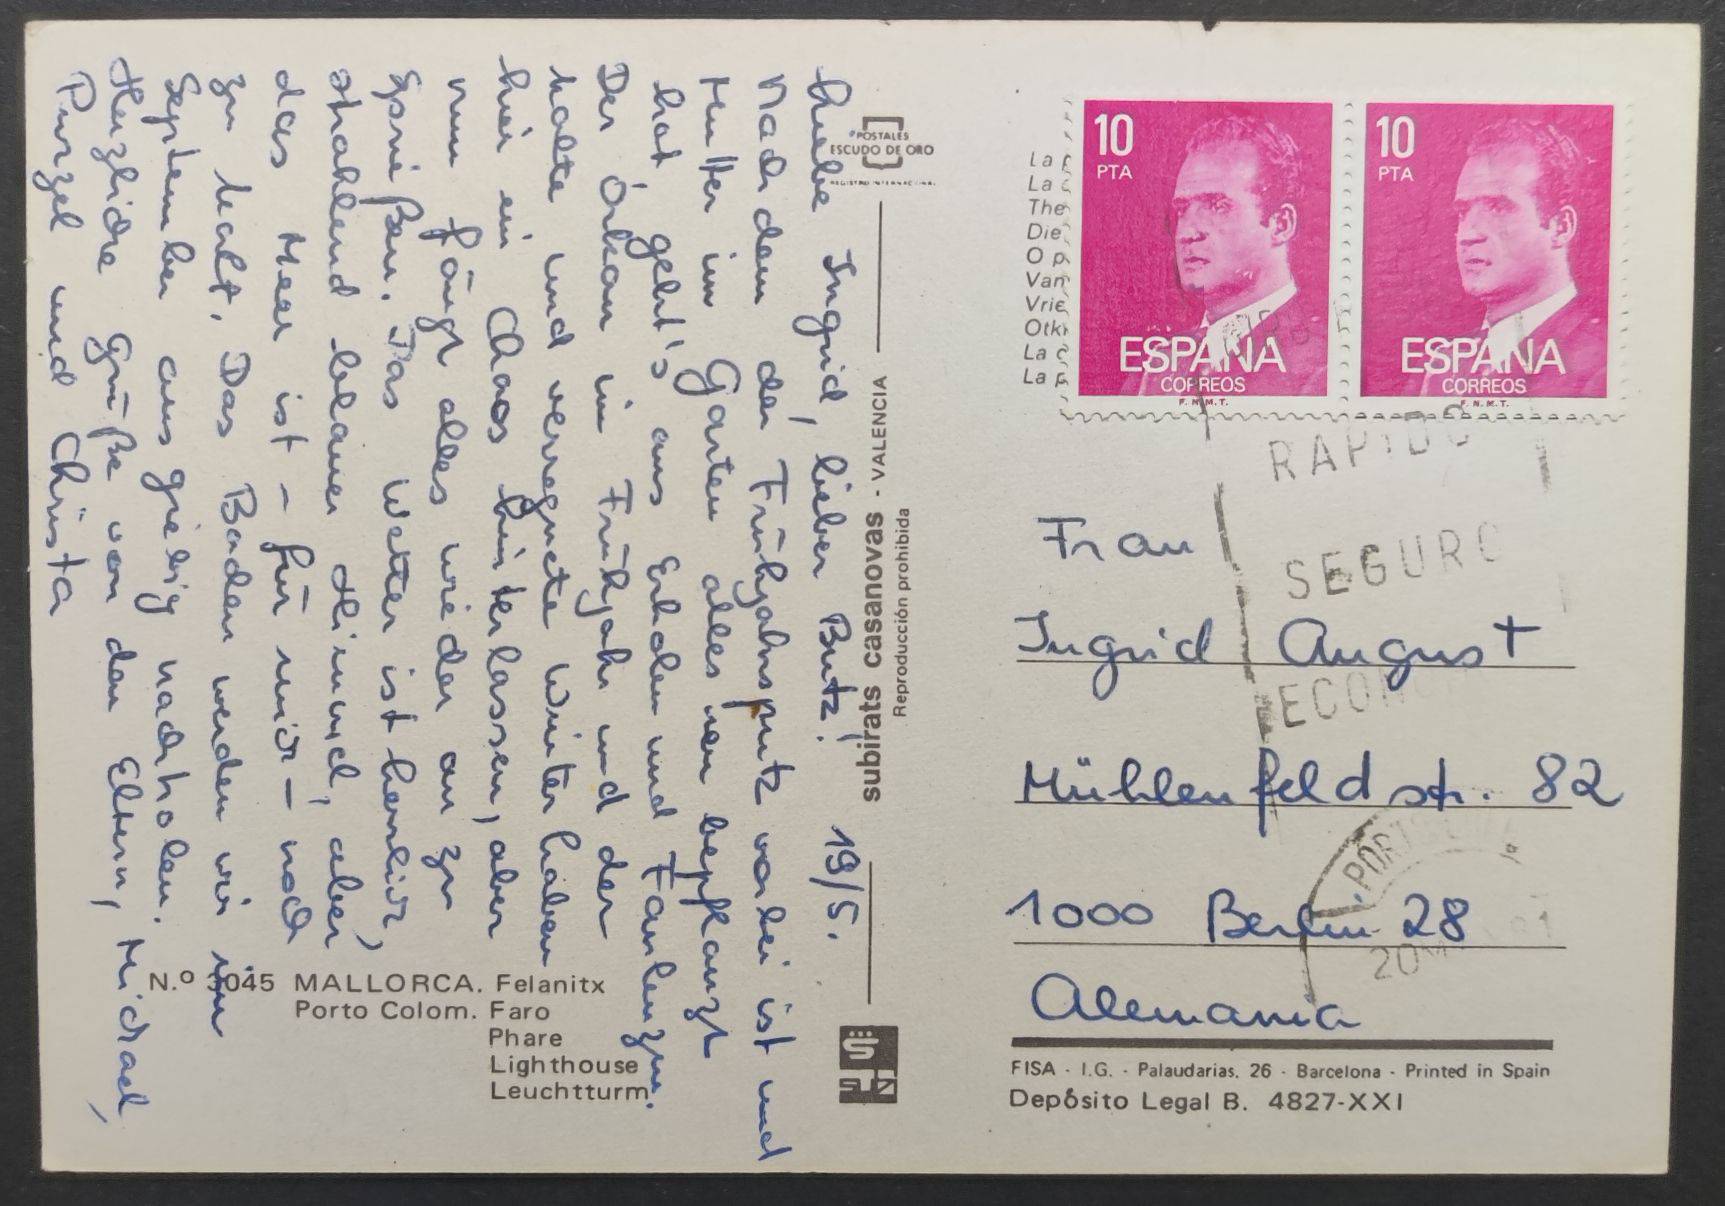 Liebe Ingrid, lieber Butz! 19/5.
Nachdem der Frühjahrsputz vorbei ist und
Mutter im Garten alles neu bepflanzt
hat, geht's ans Erholen und Faulenzen.
Der Orkan im Frühjahr und der
kalte und verregnete Winter haben
hier ein Chaos hinterlassen, aber
nun fängt alles wieder an zu
sprießen. Das Wetter ist herrlich,
strahlend blauer Himmel, aber
das Meer ist – für mich – noch
zu kalt. Das Baden werden wir im
September ausgiebig nachholen.
Herzliche Grüße von den Eltern, Michael,
Purzel und Christa
POSTALES
ESCUDO DE ORO
REGISTRO INTERNACIONAL
subirats casanovas - VALENCIA
Reproducción prohibida
N.º 3045 MALLORCA. Felanitx
Porto Colom. Faro
Phare
Lighthouse
Leuchtturm
La
La
The
Die
O p
Van
Vrie
Otk
La
La
10
PTA
ESPAÑA
CORREOS
F.N.M.T.
10
PTA
ESPAÑA
CORREOS
F.N.M.T.
RAPIDO
SEGURO
ECON
PORTO
20
Frau
Ingrid August
Mühlenfeldstr. 82
1000 Berlin 28
Alemania
FISA - I.G. - Palaudarias, 26 - Barcelona - Printed in Spain
Depósito Legal B. 4827-XXI